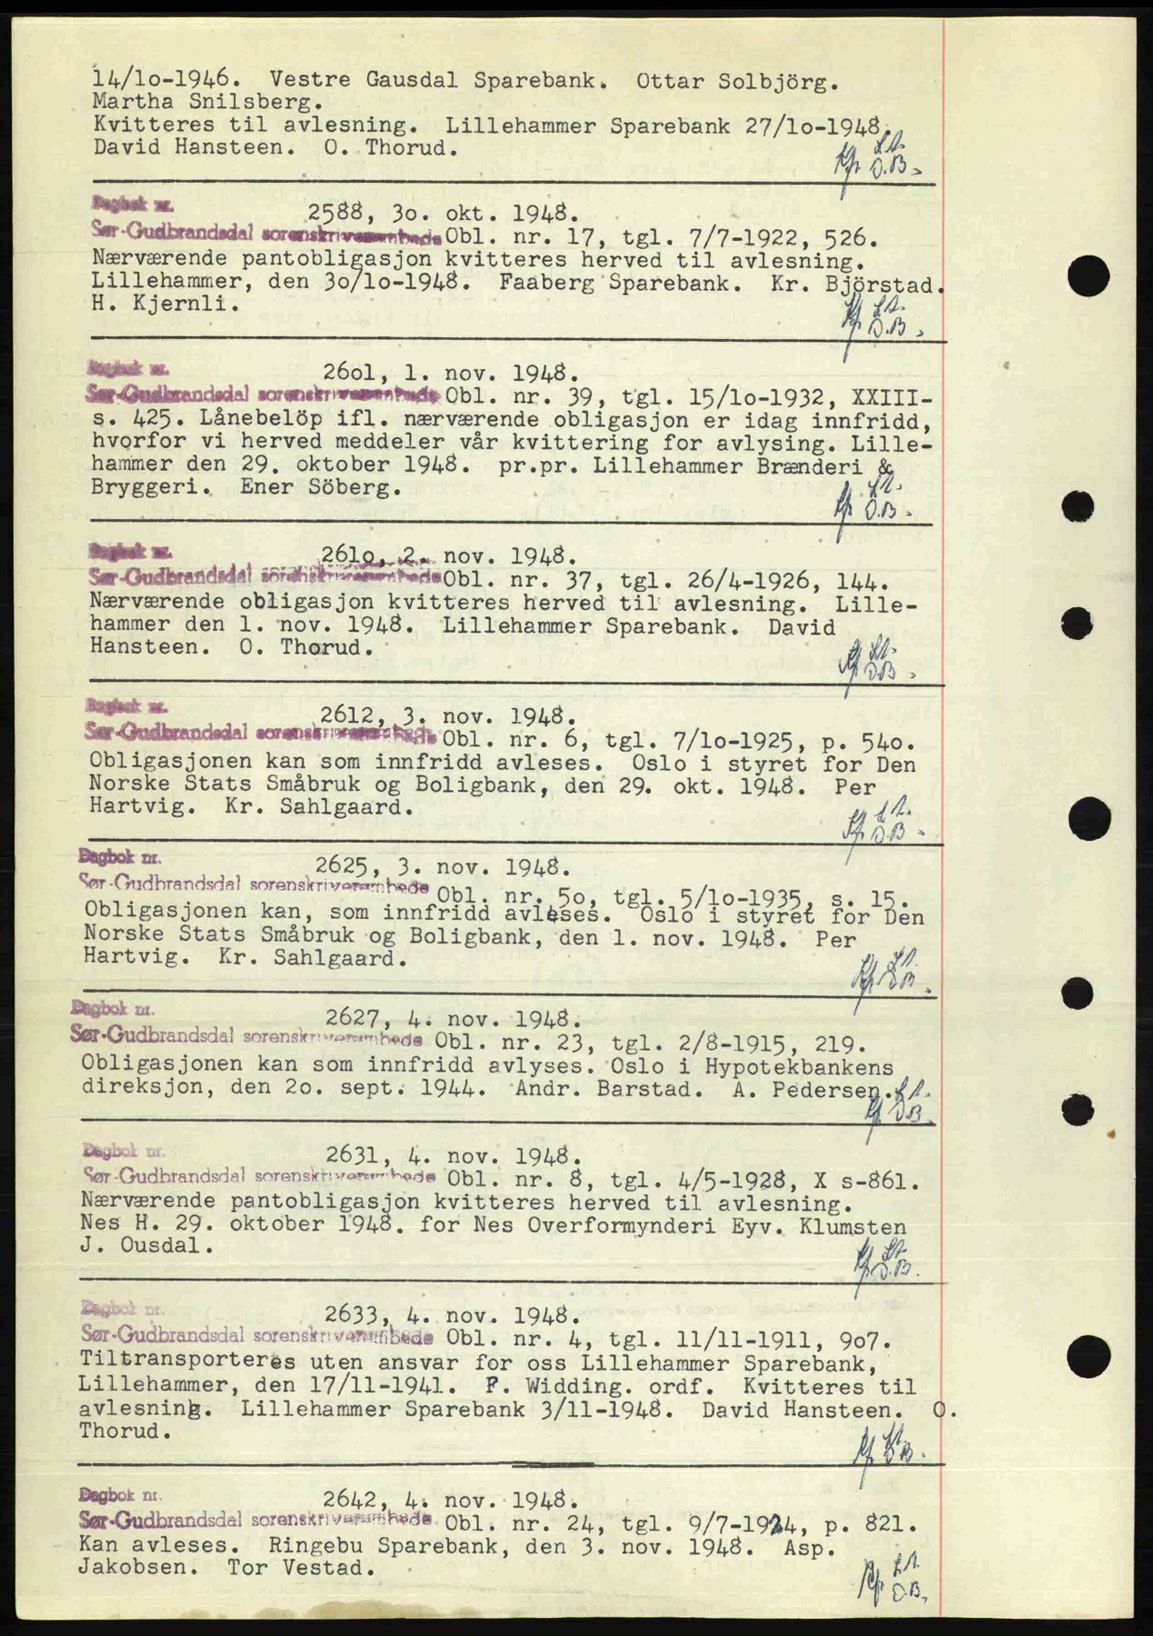 14/1o-1946.  Vestre Gausdal Sparebank.  Ottar Solbjörg.
Martha Snilsberg.
Kvitteres til avlesning.  Lillehammer Sparebank 27/1o-1948.
David Hansteen.  O. Thorud.
D.B.
Dagbok nr. 2588, 3o. okt. 1948.
Sør-Gudbrandsdal sorenskriverembede Obl. nr. 17, tgl. 7/7-1922, 526.
Nærværende pantobligasjon kvitteres herved til avlesning.
Lillehammer, den 3o/1o-1948.  Faaberg Sparebank.  Kr. Björstad.
H. Kjernli.
D.B.
Dagbok nr. 26o1, 1. nov. 1948.
Sør-Gudbrandsdal sorenskriverembede Obl. nr. 39, tgl. 15/1o-1932, XXIII-
s. 425. Lånebelöp ifl. nærværende obligasjon er idag innfridd,
hvorfor vi herved meddeler vår kvittering for avlysing. Lille-
hammer den 29. oktober 1948.  pr.pr. Lillehammer Brænderi &
Bryggeri.  Ener Söberg.
D.B.
Dagbok nr. 261o, 2. nov. 1948.
Sør-Gudbrandsdal sorenskriverembede Obl. nr. 37, tgl. 26/4-1926, 144.
Nærværende obligasjon kvitteres herved til avlesning.  Lille-
hammer den 1. nov. 1948.  Lillehammer Sparebank.  David
Hansteen.  O. Thorud.
D.B.
Dagbok nr. 2612, 3. nov. 1948.
Sør-Gudbrandsdal sorenskriverembede Obl. nr. 6, tgl. 7/1o-1925, p. 54o.
Obligasjonen kan som innfridd avleses.  Oslo i styret for Den
Norske Stats Småbruk og Boligbank, den 29. okt. 1948.  Per
Hartvig.  Kr. Sahlgaard.
D.B.
Dagbok nr. 2625, 3. nov. 1948.
Sør-Gudbrandsdal sorenskriverembede Obl. nr. 5o, tgl. 5/1o-1935, s. 15.
Obligasjonen kan, som innfridd avleses.  Oslo i styret for Den
Norske Stats Småbruk og Boligbank, den 1. nov. 1948.  Per
Hartvig.  Kr. Sahlgaard.
D.B.
Dagbok nr. 2627, 4. nov. 1948.
Sør-Gudbrandsdal sorenskriverembede Obl. nr. 23, tgl. 2/8-1915, 219.
Obligasjonen kan som innfridd avlyses. Oslo i Hypotekbankens
direksjon, den 2o. sept. 1944.  Andr. Barstad.  A. Pedersen.
D.B.
Dagbok nr. 2631, 4. nov. 1948.
Sør-Gudbrandsdal sorenskriverembede Obl. nr. 8, tgl. 4/5-1928, X s-861.
Nærværende pantobligasjon kvitteres herved til avlesning.
Nes H. 29. oktober 1948. for Nes Overformynderi Eyv. Klumsten
J. Ousdal.
D.B.
Dagbok nr. 2633, 4. nov. 1948.
Sør-Gudbrandsdal sorenskriverembede Obl. nr. 4, tgl. 11/11-1911, 9o7.
Tiltransporteres uten ansvar for oss Lillehammer Sparebank,
Lillehammer, den 17/11-1941.  F. Widding. ordf.  Kvitteres til
avlesning.  Lillehammer Sparebank 3/11-1948.  David Hansteen.  O.
Thorud.
D.B.
Dagbok nr. 2642, 4. nov. 1948.
Sør-Gudbrandsdal sorenskriverembede Obl. nr. 24, tgl. 9/7-1924, p. 821.
Kan avleses.  Ringebu Sparebank, den 3. nov. 1948.  Asp.
Jakobsen.  Tor Vestad.
D.B.